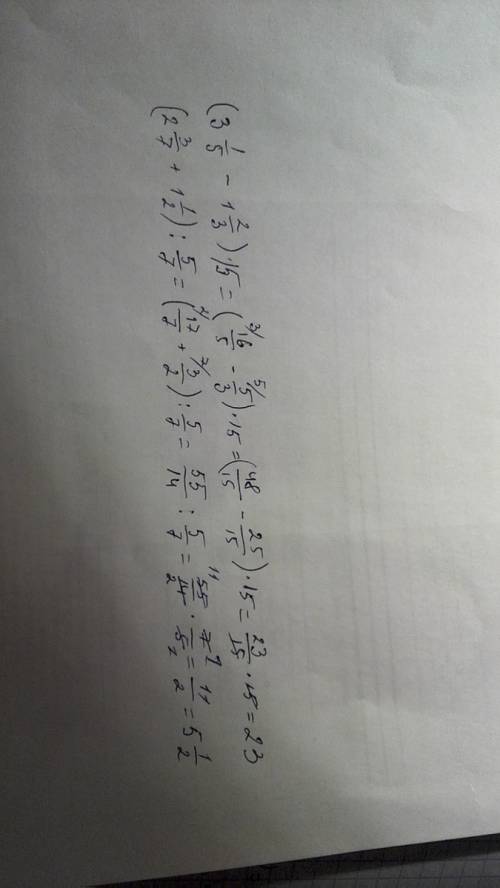 (3 1/5 - 1 2/3) · 15 = (3/ 16/5 - 5/ 5/3) · 15 = (48/15 - 25/15) · 15 = 23/15 · 15 = 23
(2 3/7 + 1 1/2) : 5/7 = (2/ 17/7 + 7/ 3/2) : 5/7 = 55/14 : 5/7 = 11 55/14 2 · 7 1/5 1 = 11/2 = 5 1/2